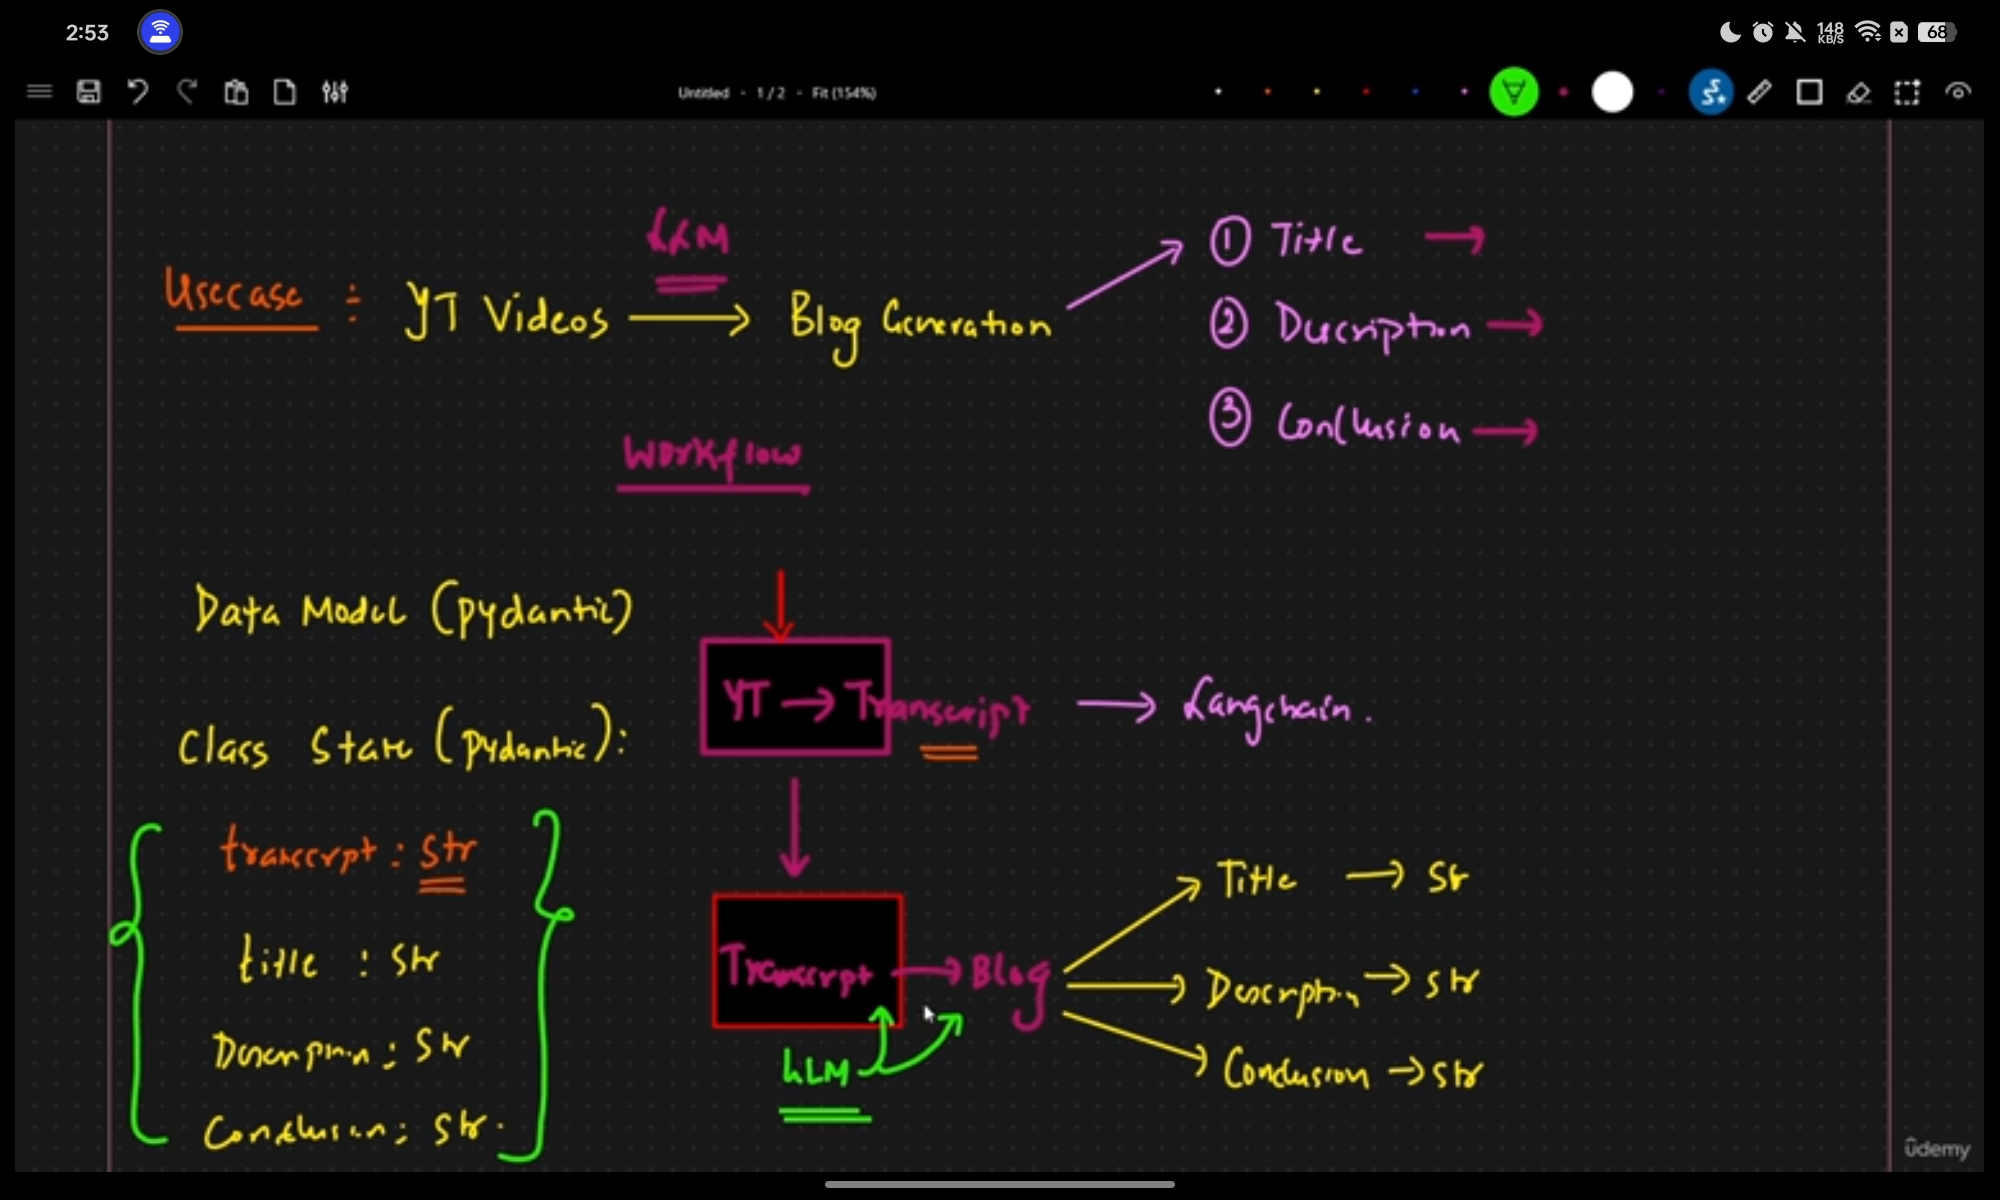 2:53
148
KB/S
68
Untitled - 1 / 2 - Fit (154%)
LLM
Usecase : YT Videos → Blog Generation
① Title →
② Description →
③ Conclusion →
Workflow
Data Model (pydantic)
YT → Transcript → Langchain.
Class State (pydantic):
transcrpt : str
title : str
Description : str
Conclusion : str.
Transcrpt → Blog
LLM
Title → Str
Descrption → str
Conclusion → str
ûdemy